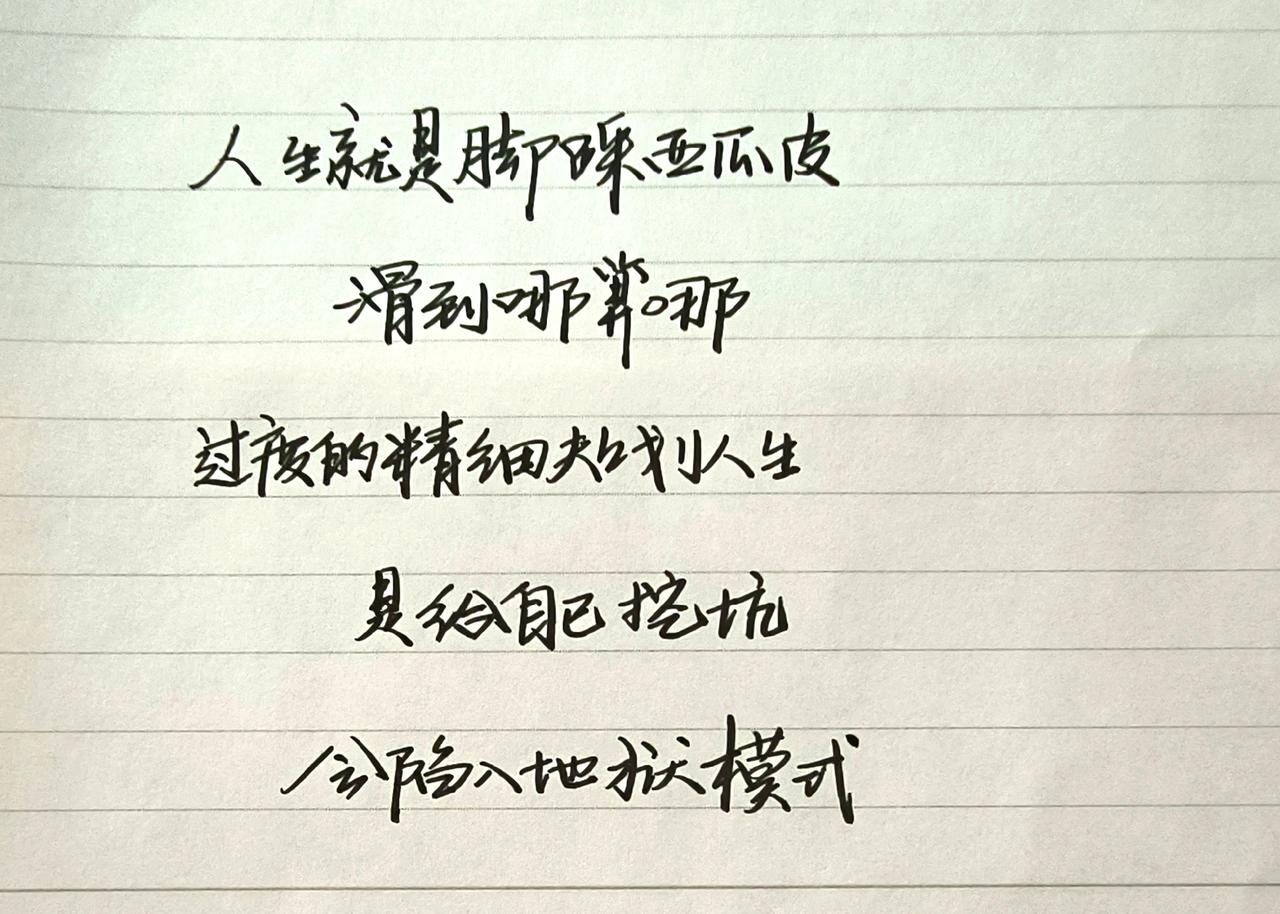 人生就是脚踩西瓜皮
滑到哪算哪
过度的精细规划人生
是给自己挖坑
会陷入地狱模式